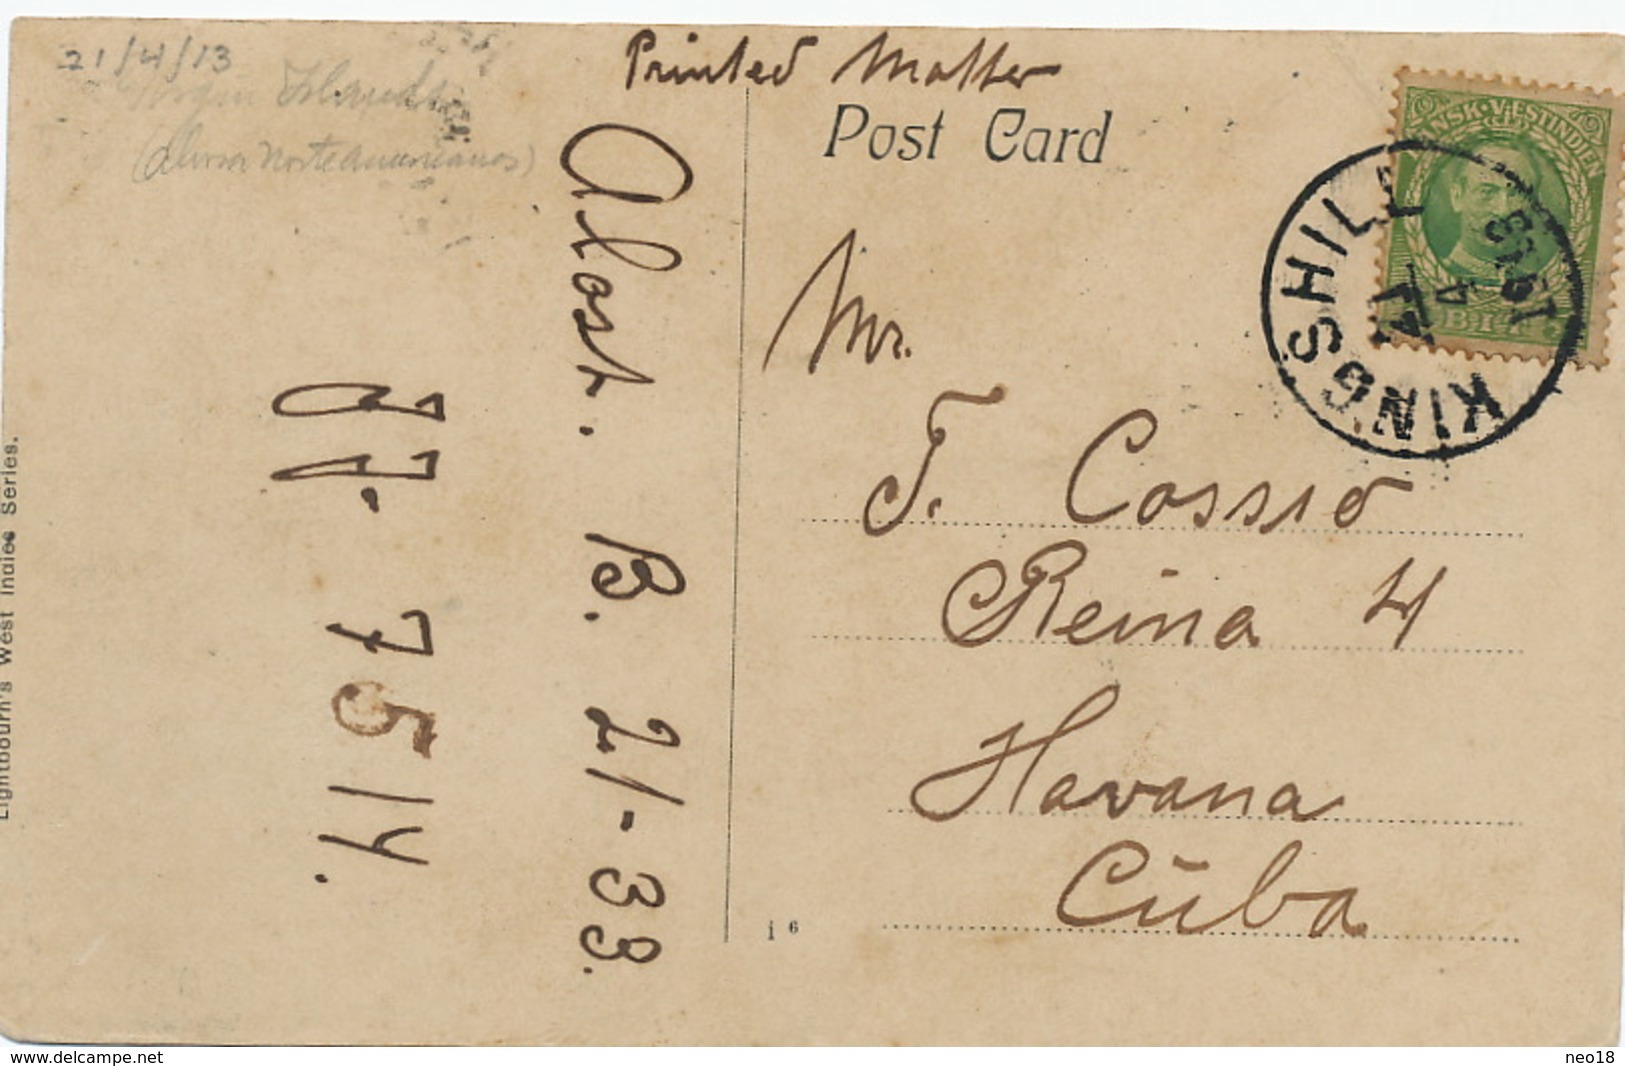 21/4/13
Virgin Islands
Printed Matter
Post Card
DANSK·VÆSTINDIEN
5 BIT
KINGSHILL
1913
4
Mr.
F. Cossio
Reina 4
Havana
Cuba
i 6
Alost. B. 21-33.
J.J. 7514.
Lightbourn's West Indies Series.
www.delcampe.net
neo18